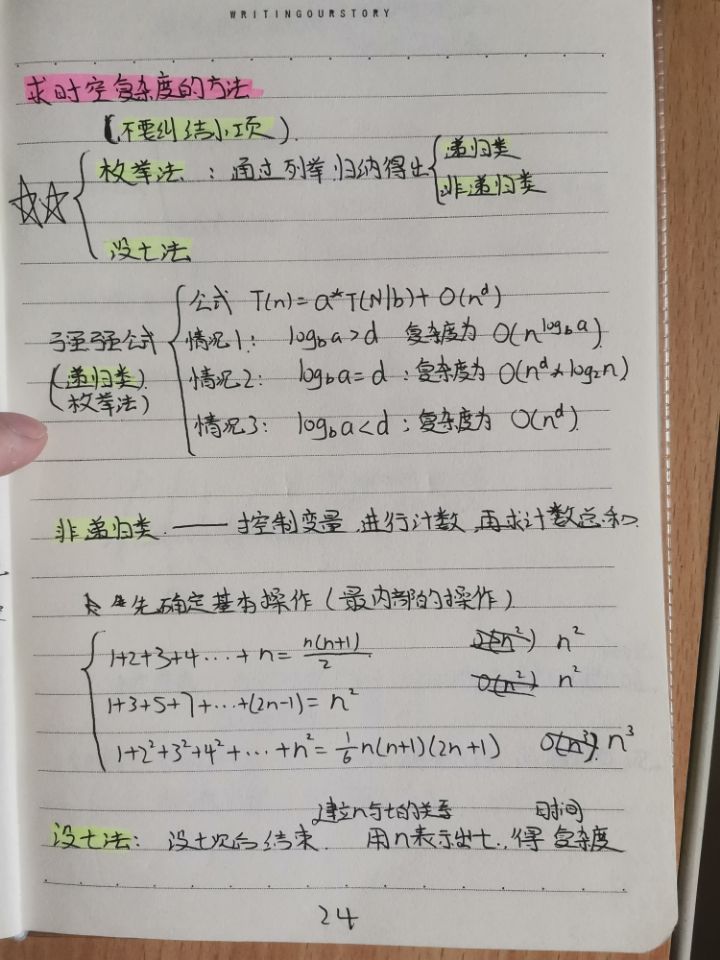 WRITINGOURSTORY
求时空复杂度的方法
(不要纠结小项).
枚举法:通过列举归纳得出 递归类
非递归类
设t法
公式 T(n)=a*T(N/b)+O(n^d)
强强公式 情况1: log_b a>d 复杂度为 O(n^{log_b a})
(递归类) 情况2: log_b a=d:复杂度为 O(n^d*log₂n)
(枚举法)
情况3: log_b a<d;复杂度为 O(n^d)
非递归类.——控制变量,进行计数,再求计数总和
先确定基本操作(最内部的操作)
1+2+3+4…+n=n(n+1)/2 O(n²) n²
1+3+5+7+…+(2n-1)=n² O(n²) n²
1+2²+3²+4²+…+n²=1/6n(n+1)(2n+1) O(n³) n³
建立n与t的关系 时间
设t法: 设t次后结束. 用n表示出t.,得复杂度
24